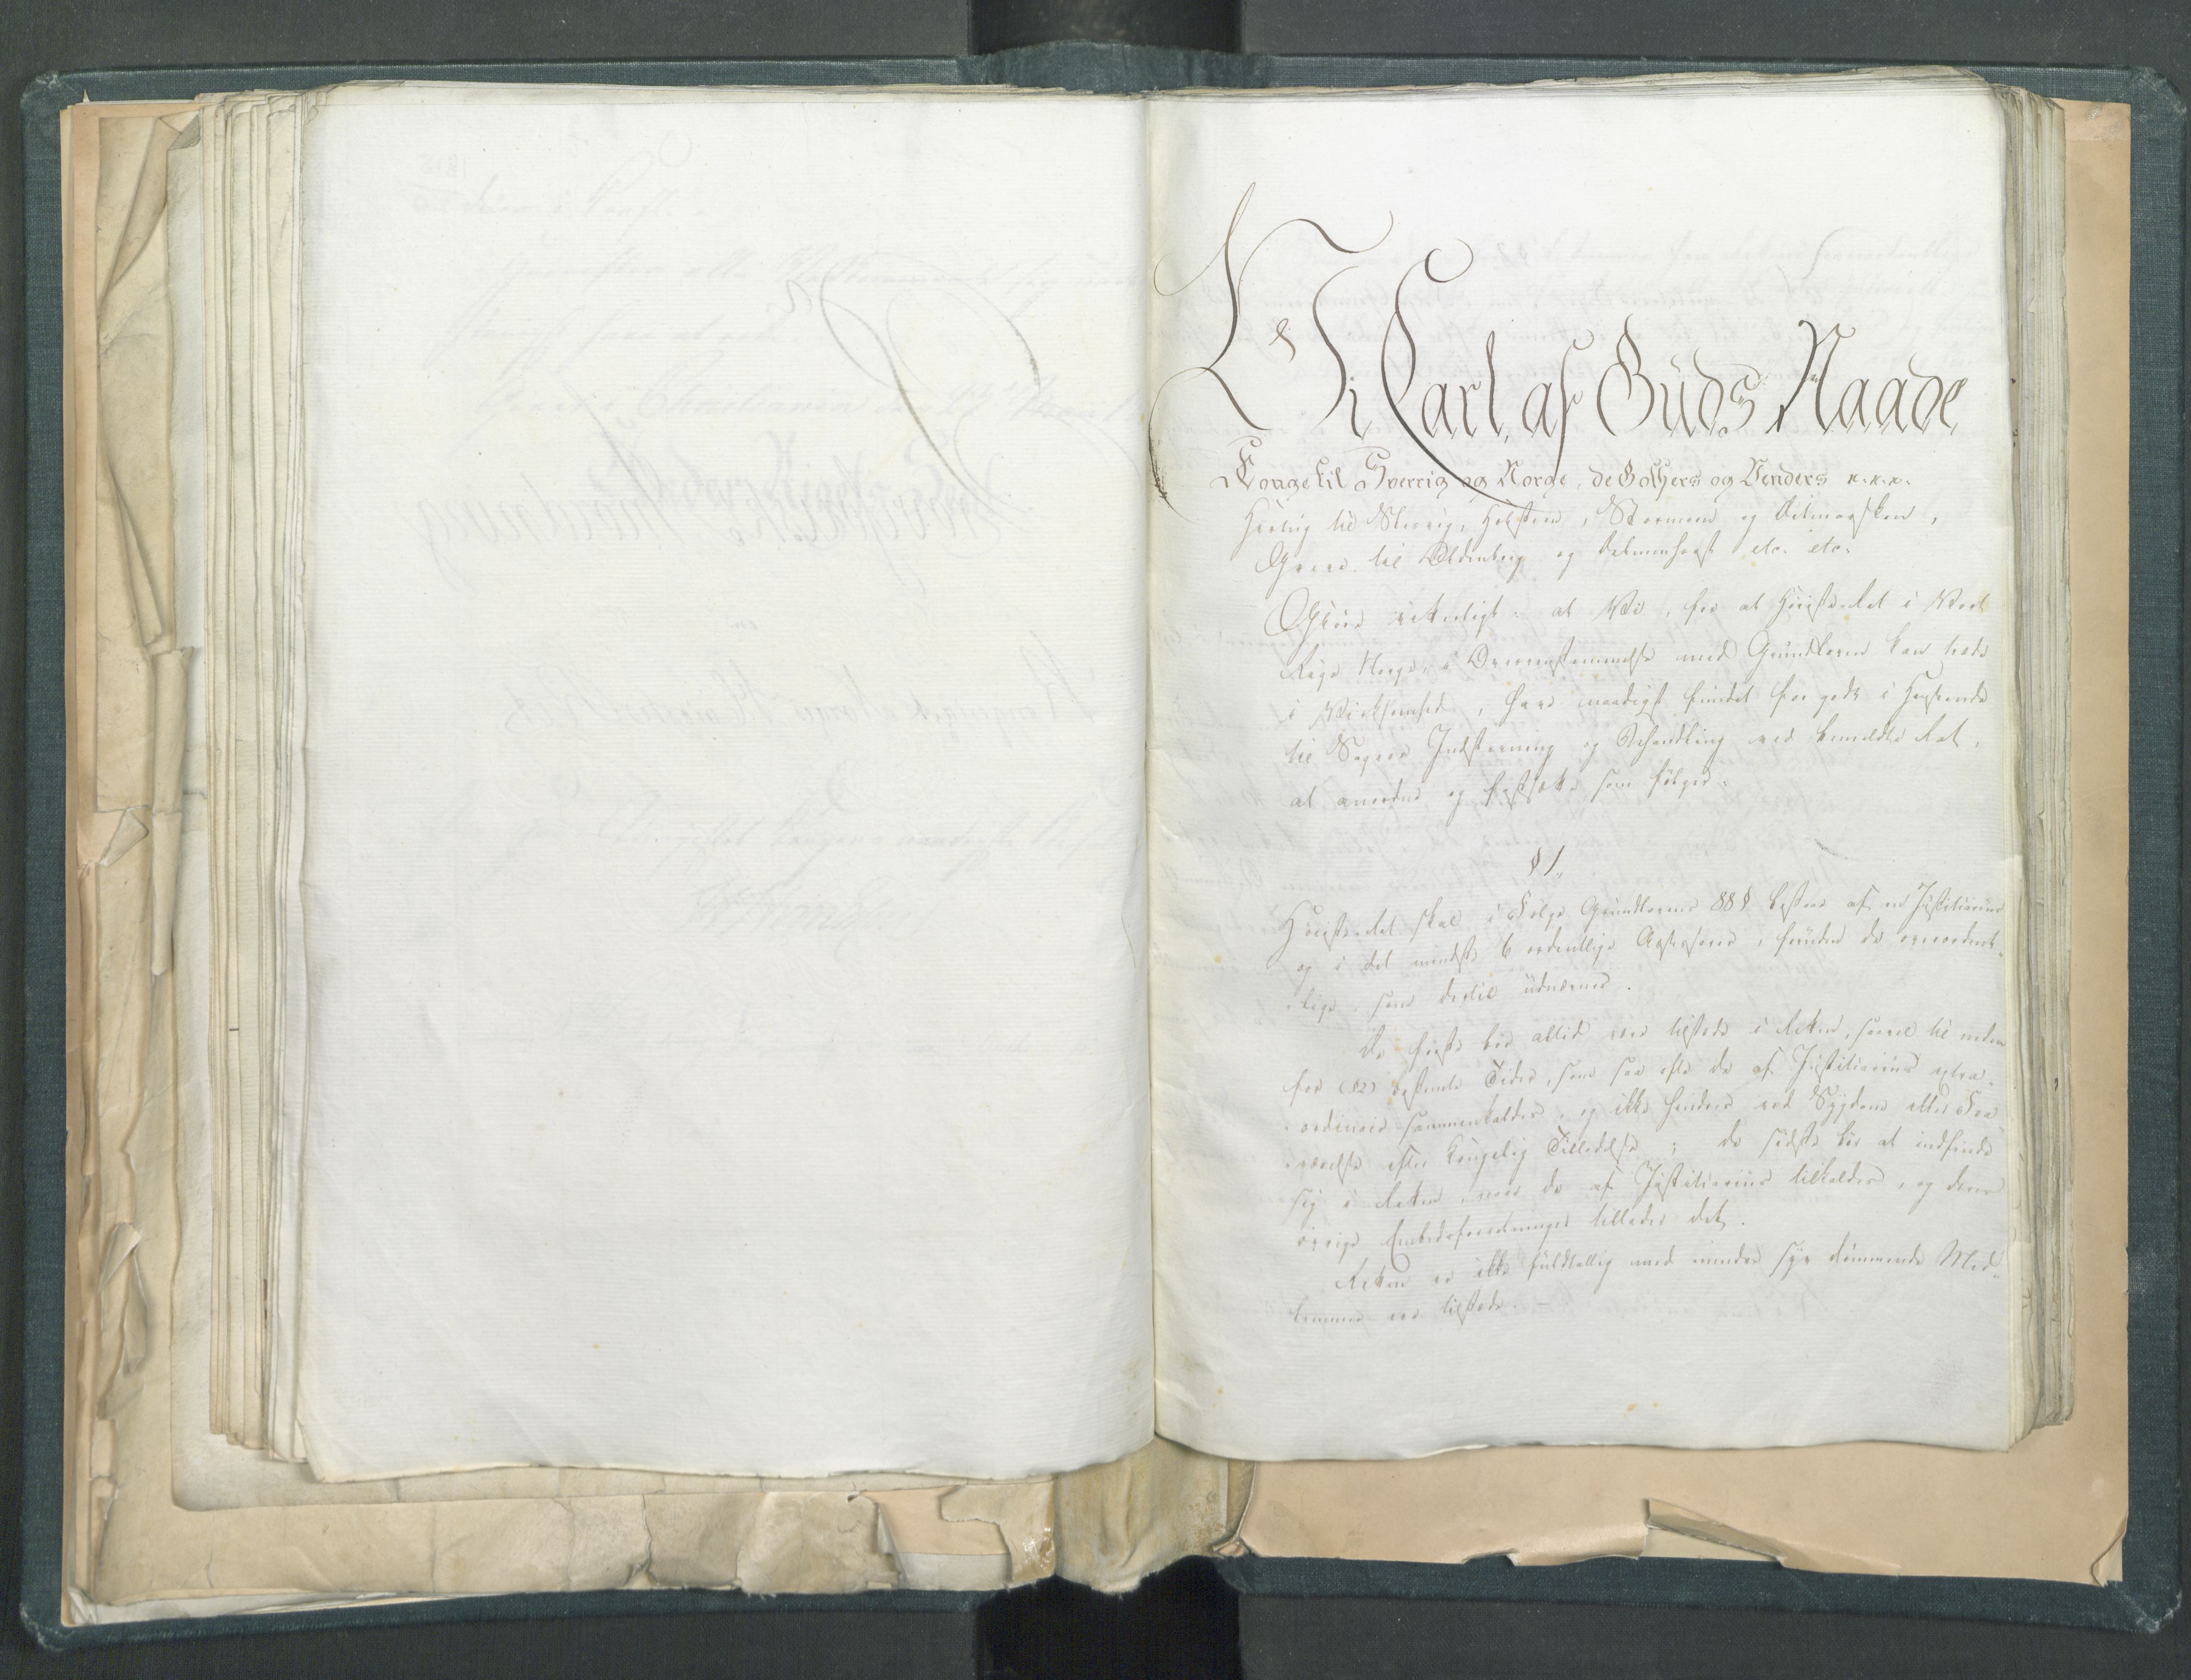 Vi Carl, af Guds Naade
Konge til Sverrig og Norge, de Gothers og Venders &c. &c. &c.
Hertug til Slesvig, Holsten, Stormarn og Ditmarsken,
Greve til Oldenborg og Delmenhorst etc. etc.
Gjøre vitterligt: at Vi, for at Høiesteret i Vort
Rige Norge, i Overeensstemmelse med Grundloven kan træde
i Virksomhed, have naadigst fundet for godt i Henseende
til Sagers Indstevning og Behandling ved bemeldte Ret,
at anordne og fastsætte som følger:
§ 1.
Høiesteret skal i Følge Grundlovens 88 § bestaae af en Justitiarius
og i det mindste 6 ordentlige Assessorer, foruden de overordent-
lige, som dertil udnævnes.
De første bør altid være tilstede i Retten, saavel til neden
for (§2) bestemte Tider, som saa ofte de af Justitiarius extra-
ordinair sammenkaldes, og ikke hindres ved Sygdom eller Fra-
værelse efter kongelig Tilladelse; de sidste bør at indfinde
sig i Retten, naar de af Justitiarius tilkaldes, og deres
øvrige Embedsforretninger tillader det.
Retten er ikke fuldtallig med mindre syv dømmende Med-
lemmer ere tilstede. —